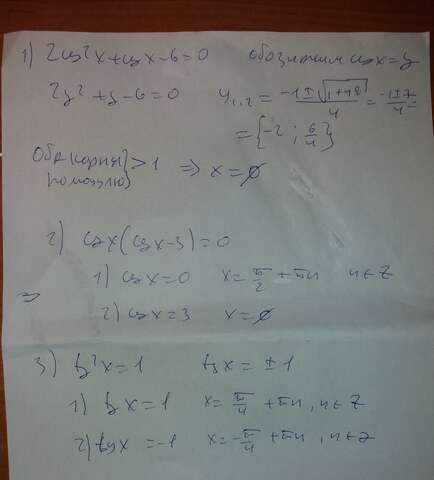 1) 2cos²x+cosx-6=0 обозначим cosx=y
2y²+y-6=0 y₁,₂ = (-1±√(1+48))/4 = (-1±7)/4 =
= {-2; 6/4}
Оба корня } > 1 ⇒ x=∅
по модулю
2) cosx(cosx-3)=0
1) cosx=0 x=π/2+πn n∈Z
⇒
2) cosx=3 x=∅
3) tg²x=1 tgx=±1
1) tgx=1 x=π/4+πn, n∈Z
2) tgx=-1 x=-π/4+πn, n∈Z